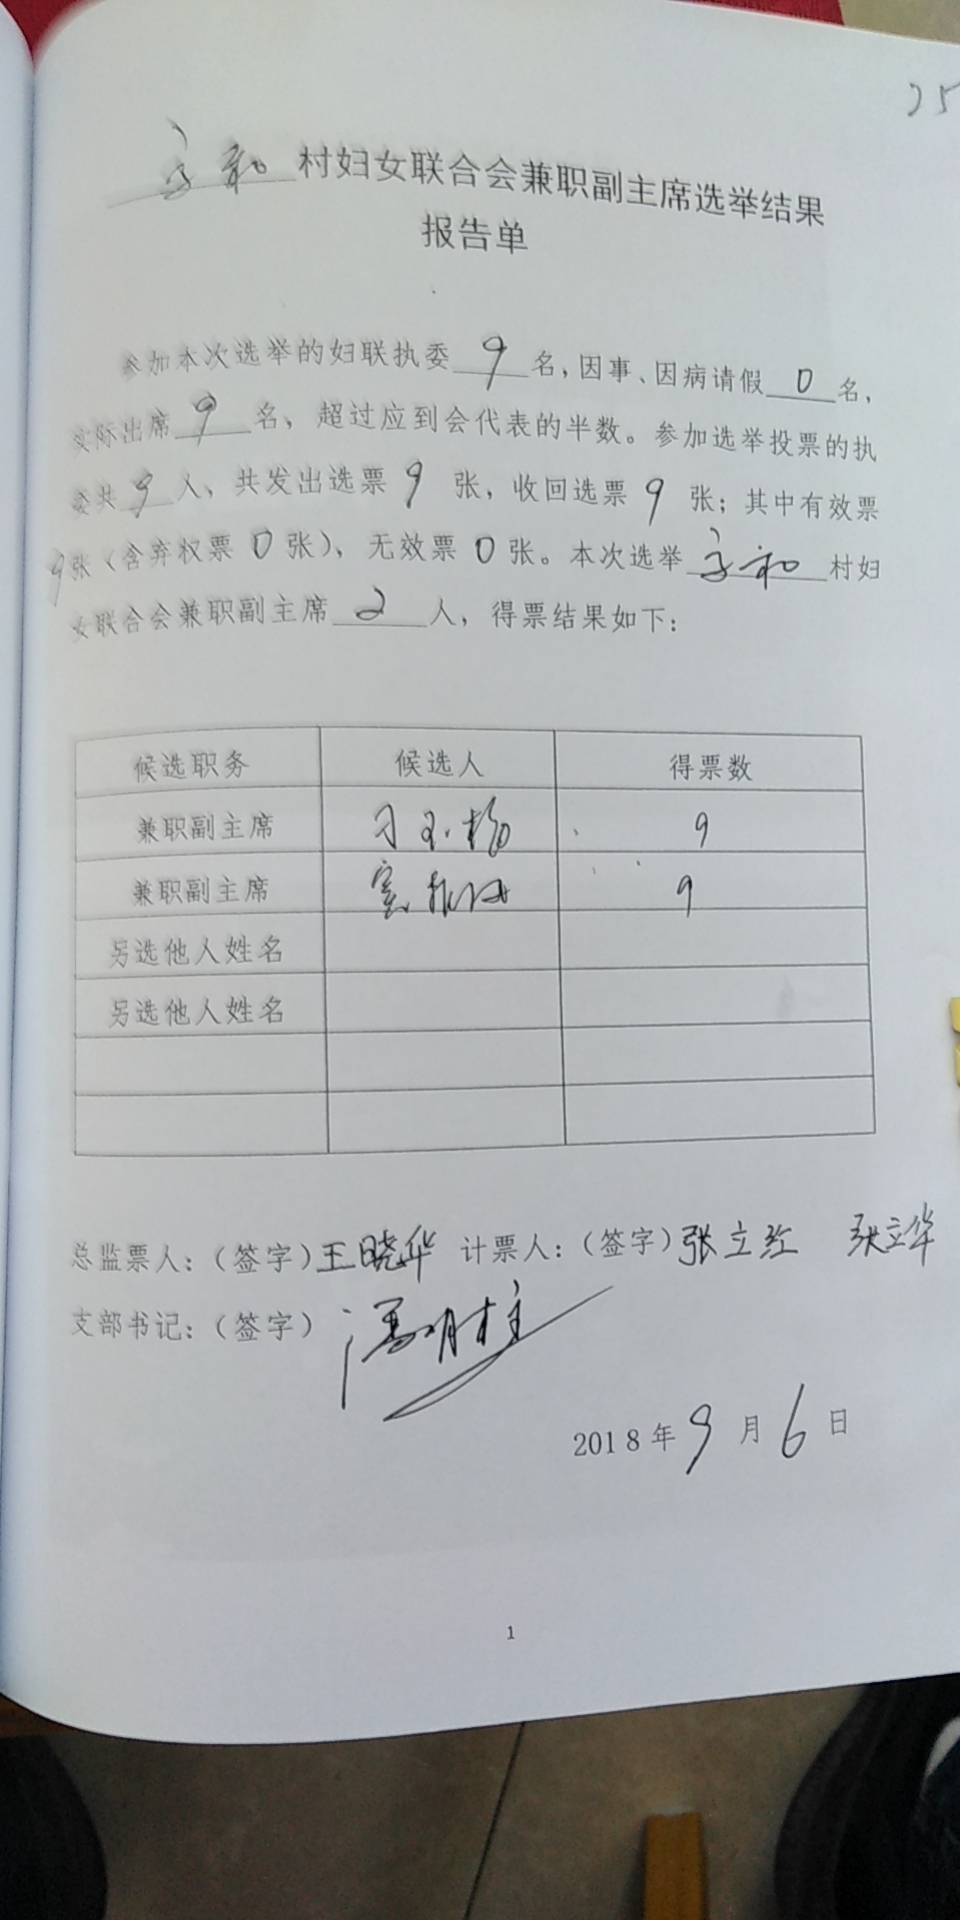 25
和村妇女联合会兼职副主席选举结果
报告单
参加本次选举的妇联执委9名,因事、因病请假0名,
实际出席9名，超过应到会代表的半数。参加选举投票的执
委共9人，共发出选票9张，收回选票9张；其中有效票
9张（含弃权票0张）、无效票0张。本次选举和村妇
女联合会兼职副主席2人，得票结果如下：
候选职务 候选人 得票数
兼职副主席 9
兼职副主席 9
另选他人姓名
另选他人姓名
总监票人：（签字）王晓华 计票人：（签字）张立红 张立华
支部书记：（签字）冯明柱
2018年9月6日
1